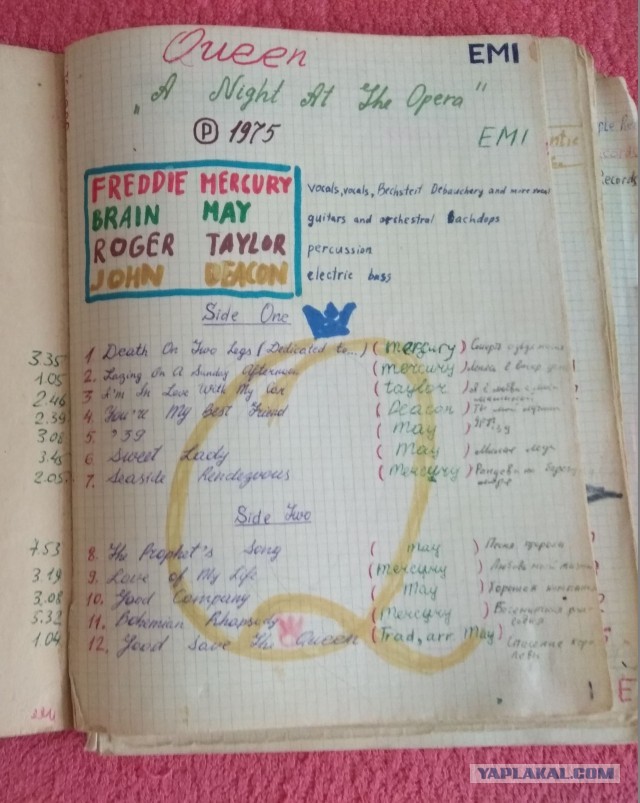 Queen EMI
„A Night At The Opera"
Ⓟ 1975 EMI
FREDDIE MERCURY vocals, vocals, Bechstein Debauchery and more
BRAIN MAY guitars and orchestral backdops
ROGER TAYLOR percussion
JOHN DEACON electric bass
Side One
3.35 1 Death On Two Legs (Dedicated to...) (mercury)
1.05 2. Lazing On A Sunday Afternoon (mercury)
2.46 3 I'm In Love With My Car (taylor)
2.39 4 You're My Best Friend (Deacon)
3.08 5. '39 (May)
3.45 6 Sweet Lady (May)
2.05 7. Seaside Rendezvous (Mercury)
Side Two
7.53 8. The Prophet's Song (May) Песня пророка
3.19 9. Love of My Life (mercury)
3.08 10. Good Company (May) Хорошая
5.32 11. Bohemian Rhapsody (Mercury)
1.04 12. Good Save The Queen (Trad, arr May) Спасение
ecords
E
YAPLAKAL.COM